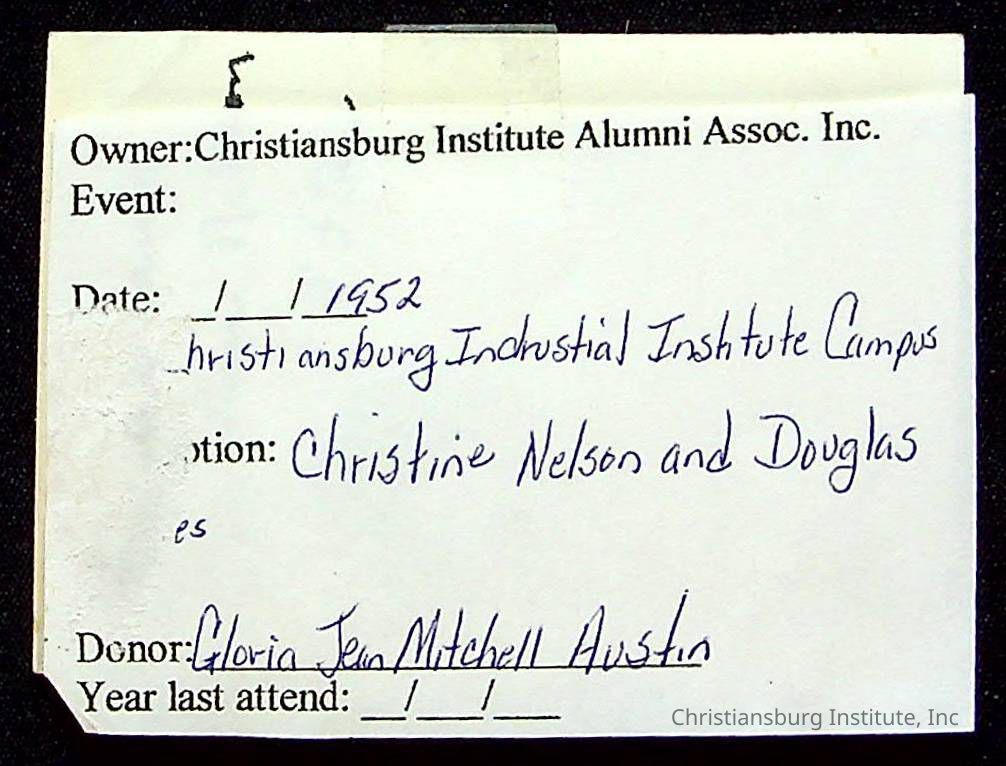 Owner:Christiansburg Institute Alumni Assoc. Inc.
Event:
Date: __/___/_1952
hristiansburg Indrustial Institute Campus
tion: Christine Nelson and Douglas
es
Donor:Gloria Jean Mitchell Austin
Year last attend: __/___/___
Christiansburg Institute, Inc